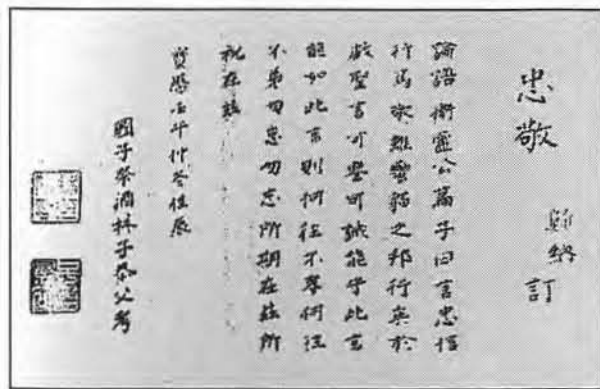 忠敬
訂
論語衛靈公篇子曰言忠信
行篤敬雖蠻貊之邦行矣於
戲聖言可可誠能守此言
能如此言則何往不何往
不勿怠勿忘所期在茲所
祝在茲
寶仲冬佳辰
國子祭酒林子恭父